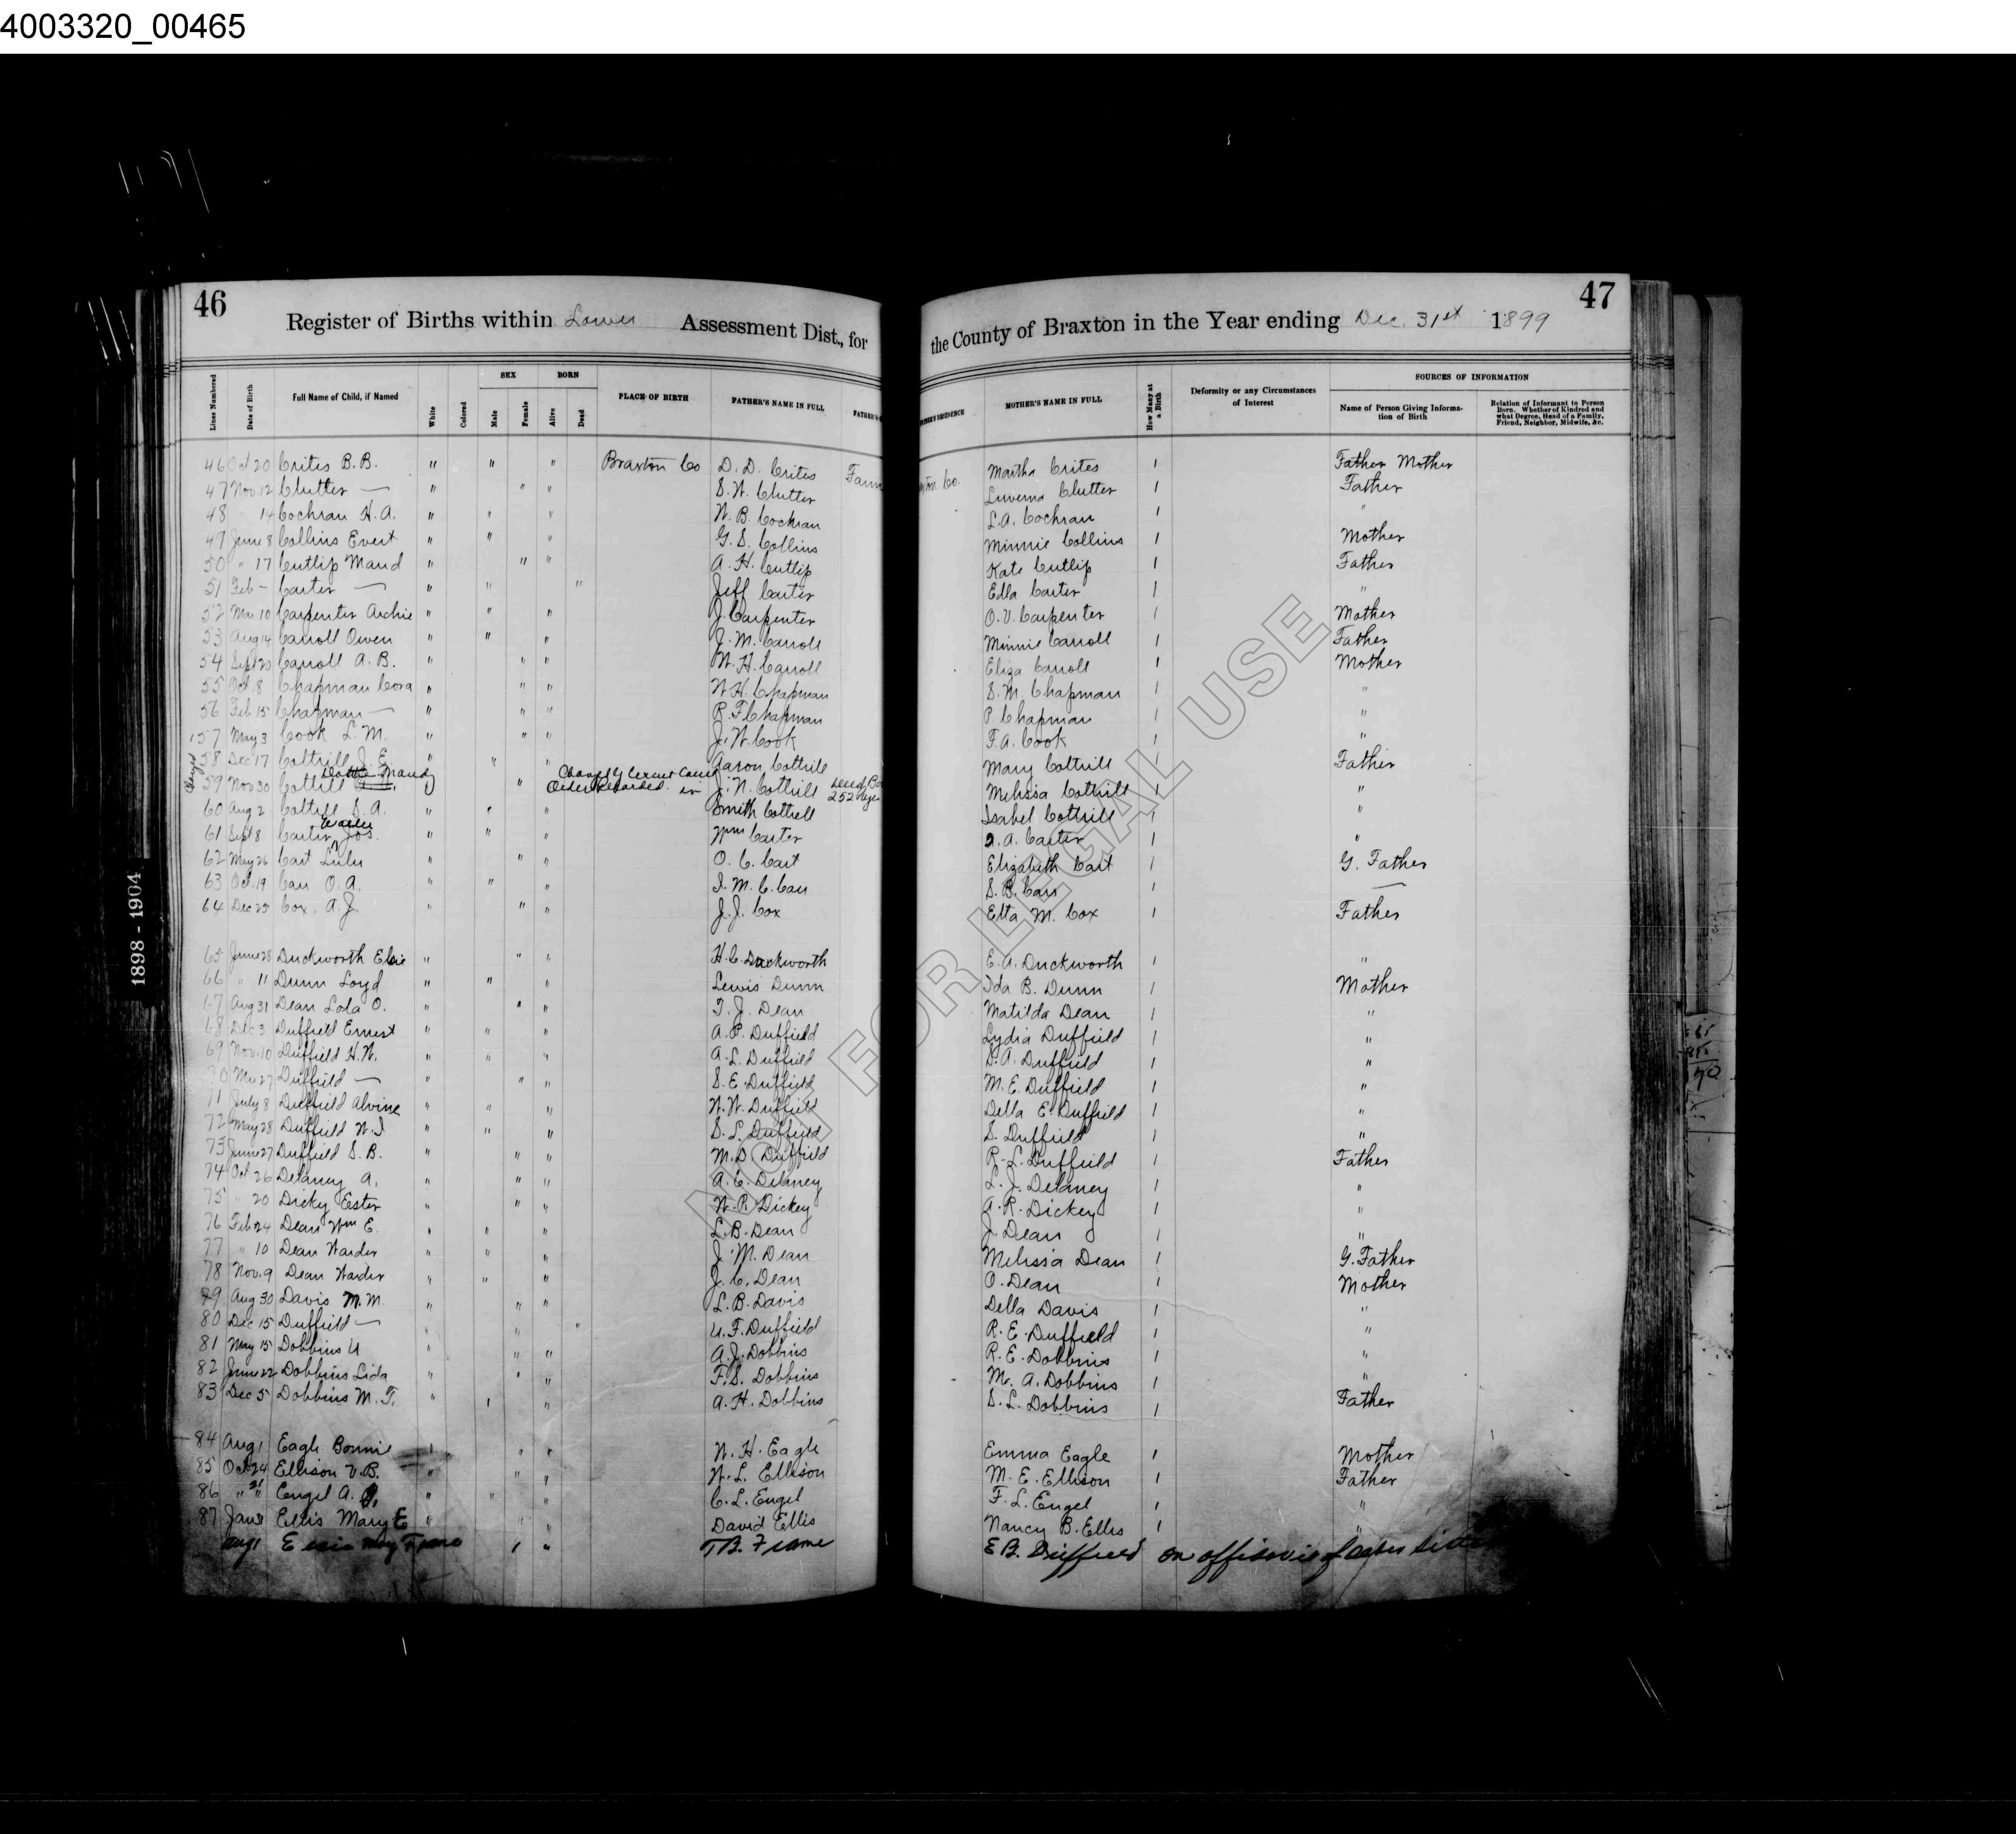 4003320_00465
46
Register of Births within Lower Assessment Dist., for
the County of Braxton in the Year ending Dec. 31st 1899
47
Lines Numbered
Date of Birth
Full Name of Child, if Named
White
Colored
SEX
Male
Female
BORN
Alive
Dead
PLACE OF BIRTH
FATHER'S NAME IN FULL
MOTHER'S NAME IN FULL
How Many at a Birth
Deformity or any Circumstances of Interest
SOURCES OF INFORMATION
Name of Person Giving Information of Birth
Relation of Informant to Person Born. Whether of Kindred and what Degree, Head of a Family, Friend, Neighbor, Midwife, &c.
46 Oct 20 Crites B. B. " " " Braxton Co D. D. Crites Farm Martha Crites 1 Father Mother
47 Nov. 12 Clutter — " " " S. W. Clutter Luverna Clutter 1 Father
48 " 14 Cochran H. A. " " " W. B. Cochran L. A. Cochran 1 "
49 June 8 Collins Evert " " " G. S. Collins Minnie Collins 1 Mother
50 " 17 Cutlip Maud " " " A. H. Cutlip Kate Cutlip 1 Father
51 Feb — Carter — " " " Jeff Carter Edla Carter 1 "
52 Mar 10 Carpenter Archie " " " J. Carpenter O. V. Carpenter 1 Mother
53 Aug 14 Carroll Owen " " " J. M. Carroll Minnie Carroll 1 Father
54 Sept 20 Carroll A. B. " " " W. H. Carroll Eliza Carroll 1 Mother
55 Oct. 8 Chapman Cora " " " W. H. Chapman S. M. Chapman 1 "
56 Feb 15 Chapman — " " " R. F. Chapman P. Chapman 1 "
57 May 3 Cook L. M. " " " J. W. Cook F. A. Cook 1 "
58 Dec 17 Cottrill J. E. " " " Aaron Cottrill Mary Cottrill 1 Father
59 Nov 30 Cottrill Mandy " " Changed by Circuit Court Order Recorded in J. N. Cottrill Deed 252 Melissa Cottrill 1 "
60 Aug 2 Cottrill S. A. " " " Smith Cottrell Isabel Cottrill 1 "
61 Sept 8 Carter Jos. " " " Wm Carter D. A. Carter 1 "
62 May 26 Cart Lulu " " " O. C. Cart Elizabeth Cart 1 G. Father
63 Oct. 19 Carr O. A. " " " S. M. C. Carr S. B. Carr 1 —
64 Dec 25 Cox, A. J. " " " J. J. Cox Etta M. Cox 1 Father
65 June 28 Duckworth Elsie " " " H. C. Duckworth E. A. Duckworth 1 "
66 " 11 Dunn Loyd " " " Lewis Dunn Ida B. Dunn 1 Mother
67 Aug 31 Dean Lola O. " " " T. J. Dean Matilda Dean 1 "
68 Dec 3 Duffield Ernest " " " A. P. Duffield Lydia Duffield 1 "
69 Nov. 10 Duffield H. W. " " " A. L. Duffield S. A. Duffield 1 "
70 Mar 27 Duffield — " " " S. E. Duffield M. E. Duffield 1 "
71 July 8 Duffield Alvine " " " W. W. Duffield Della E. Duffield 1 "
72 May 28 Duffield W. I " " " S. L. Duffield S. Duffield 1 "
73 June 27 Duffield S. B. " " " M. D. Duffield R. L. Duffield 1 Father
74 Oct 26 Delaney A. " " " A. C. Delaney L. J. Delaney 1 "
75 " 20 Dicky Ester " " " W. P. Dickey A. R. Dickey 1 "
76 Feb 24 Dean Wm E. " " " L. B. Dean J. Dean 1 "
77 " 10 Dean Warder " " " J. M. Dean Melissa Dean 1 G. Father
78 Nov. 9 Dean Warder " " " J. C. Dean O. Dean 1 Mother
79 Aug 30 Davis M. M. " " " L. B. Davis Della Davis 1 "
80 Dec 15 Duffield — " " " U. F. Duffield R. E. Duffield 1 "
81 May 15 Dobbins U " " " A. J. Dobbins R. E. Dobbins 1 "
82 June 22 Dobbins Lida " " " F. S. Dobbins M. A. Dobbins 1 "
83 Dec 5 Dobbins M. T. " 1 " A. H. Dobbins S. L. Dobbins 1 Father
84 Aug 1 Eagle Bonnie " " " W. H. Eagle Emma Eagle 1 Mother
85 Oct 24 Ellison V. B. " " " W. L. Ellison M. E. Ellison 1 Father
86 " 31 Engel A. " " " C. L. Engel F. L. Engel 1 "
87 Jan 31 Ellis Mary E " " " David Ellis Nancy B. Ellis 1 "
Aug 1 Essie May Frame T B. Frame E B. Duffield on of
1898 - 1904
NOT FOR LEGAL USE